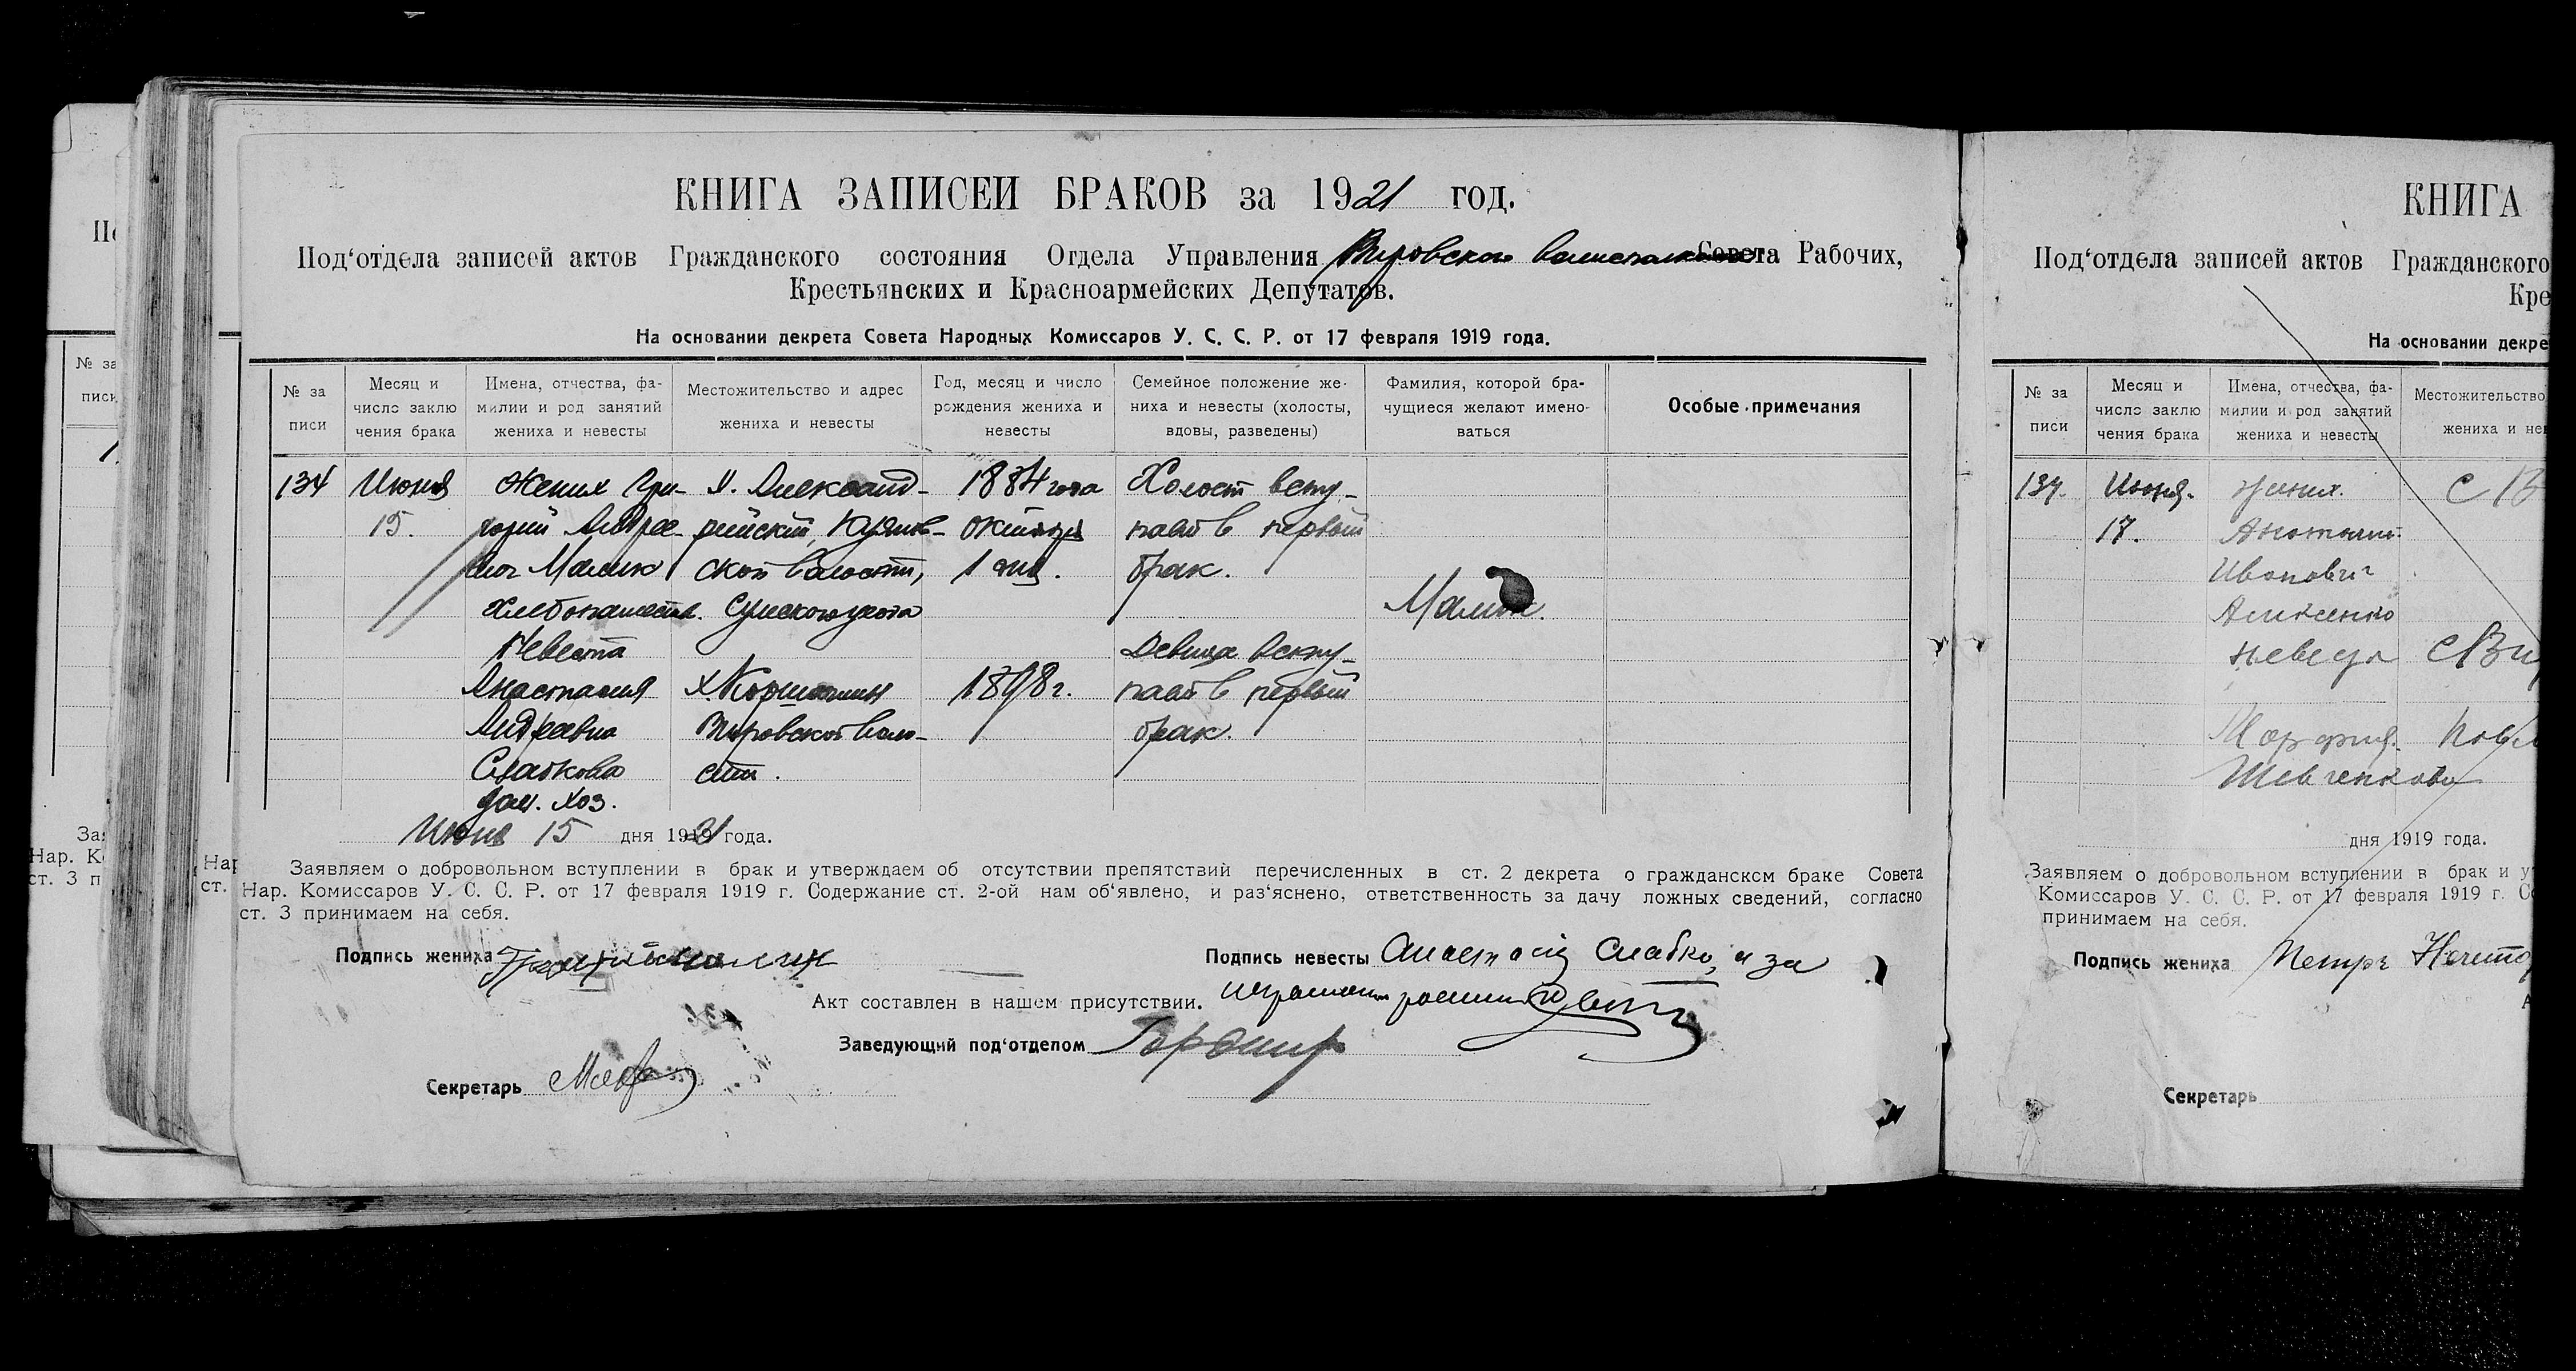 КНИГА ЗАПИСЕЙ БРАКОВ за 1921 год.
Под'отдела записей актов Гражданского состояния Отдела Управления Вировского Совета Рабочих,
Крестьянских и Красноармейских Депутатов.
На основании декрета Совета Народных Комиссаров У. С. С. Р. от 17 февраля 1919 года.
№ за писи
Месяц и число заклю чения брака
Имена, отчества, фа- милии и род занятий жениха и невесты
Местожительство и адрес жениха и невесты
Год, месяц и число рождения жениха и невесты
Семейное положение же- ниха и невесты (холосты, вдовы, разведены)
Фамилия, которой бра- чущиеся желают имено- ваться
Особые примечания
134 Июня Жених Гри- х. Александ- 1884 года Холост всту-
15. горий Андрее- рийский, Куянов- октября пает в первый
вич Малик ской волости, 1 дня. брак.
Хлебопашество. Сумского уезда Малик.
Невеста Девица всту-
Анастасия х. 1898 г. пает в первый
Андреевна Вировской воло- брак.
Слабкова сти.
дом. хоз.
Июня 15 дня 1921 года.
Заявляем о добровольном вступлении в брак и утверждаем об отсутствии препятствий перечисленных в ст. 2 декрета о гражданском браке Совета
Нар. Комиссаров У. С. С. Р. от 17 февраля 1919 г. Содержание ст. 2-ой нам об'явлено, и раз'яснено, ответственность за дачу ложных сведений, согласно
ст. 3 принимаем на себя.
Подпись жениха Подпись невесты Слабко, а за
Акт составлен в нашем присутствии.
Заведующий под'отделом
Секретарь
КНИГА
Под'отдела записей актов Гражданского
Кре
На основании декре
№ за писи
Месяц и число заклю чения брака
Имена, отчества, фа- милии и род занятий жениха и невесты
Местожительство жениха и нев
134. Июня. жених. с В
17.
Иванович
Алексенко
невеста с Ви
Марфия.
Шевченкова
дня 1919 года.
Заявляем о добровольном вступлении в брак и у
Комиссаров У. С. С. Р. от 17 февраля 1919 г. Со
принимаем на себя.
Подпись жениха Петр
Секретарь